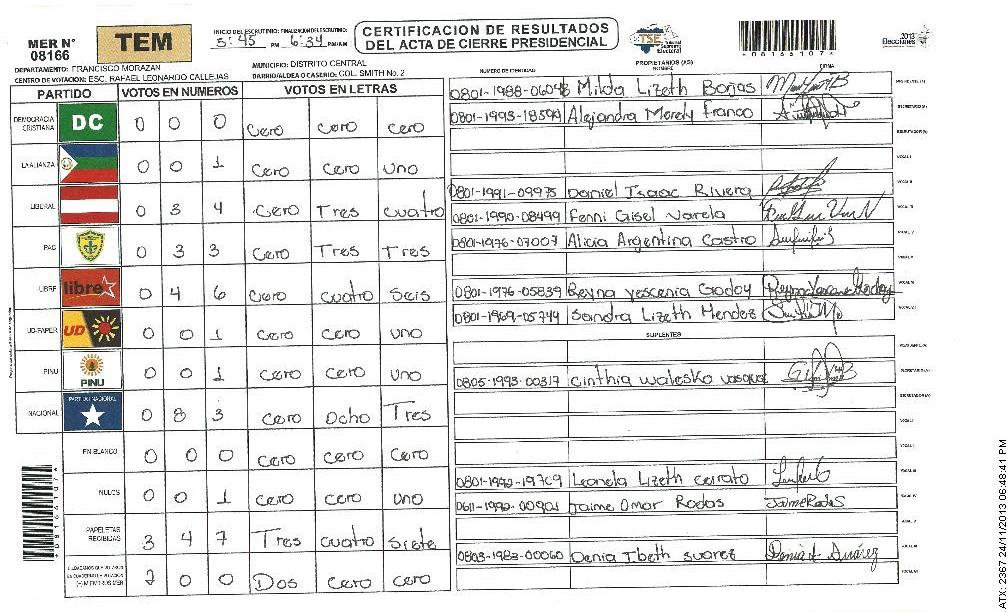 MER N° 08166
TEM
INICIO DEL ESCRUTINIO: FINALIZACION DEL ESCRUTINIO:
5:45 PM 6:34 PM/AM
CERTIFICACIÓN DE RESULTADOS
DEL ACTA DE CIERRE PRESIDENCIAL
TSE
Tribunal Supremo Electoral
*08166107*
2013
Elecciones
DEPARTAMENTO: FRANCISCO MORAZAN
MUNICIPIO: DISTRITO CENTRAL
CENTRO DE VOTACION: ESC. RAFAEL LEONARDO CALLEJAS
BARRIO/ALDEA O CASERIO: COL. SMITH No. 2
PARTIDO VOTOS EN NUMEROS VOTOS EN LETRAS
DEMOCRACIA CRISTIANA DC 0 0 0 Cero Cero Cero
LA ALIANZA 0 0 1 Cero Cero Uno
LIBERAL 0 3 4 Cero Tres Cuatro
PAC 0 3 3 Cero Tres Tres
LIBRE libre 0 4 6 Cero Cuatro Seis
UD-FAPER UD 0 0 1 Cero Cero Uno
PINU PINU 0 0 1 Cero Cero Uno
NACIONAL PARTIDO NACIONAL 0 8 3 Cero Ocho Tres
EN BLANCO 0 0 0 Cero Cero Cero
NULOS 0 0 1 Cero Cero Uno
PAPELETAS RECIBIDAS 3 4 7 Tres Cuatro Siete
2 0 0 Dos Cero Cero
*08166107*
PROPIETARIOS (AS)
NUMERO DE IDENTIDAD NOMBRE FIRMA
Milda Lizeth Borjas
0801-1993-18594 Alejandra Merely Franco
0801-1991-09975 Daniel Isaac Rivera
0801-1990-08499 Fenni Gisel Varela
0801-1976-07007 Alicia Argentina Castro
0801-1976-05839 Reyna Yescenia Godoy
0801-1969-05744 Sandra Lizeth Mendez
SUPLENTES
0805-1993-00317 Cinthia Waleska Vasquez
0801-1992-19709 Leonela Lizeth Cerrato
0611-1992-00901 Jaime Omar Rodas Jaime Rodas
0803-1983-00060 Denia Ibeth Suarez Denia I. Suárez
ATX: 2367 24/11/2013 06:48:41 PM